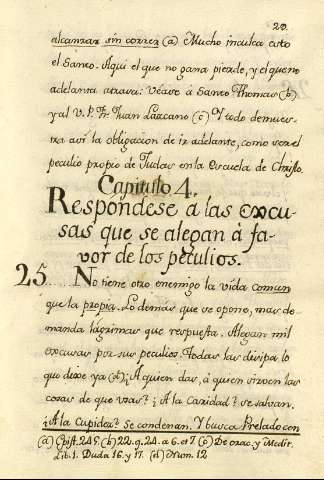 20.
alcanzar sin correr (a) Mucho inculca esto
el Santo. Aqui el que no gana pierde, y el que no
adelanta atrasa: Véase à Santo Thomas (b)
y al V. P. Fr. Juan Lazcano (c) Y todo demues-
tra asi la obligacion de ir adelante, como ver el
peculio propio de Judas en la Escuela de Christo.
Capitulo 4.
Respondese à las excu-
sas que se alegan à fa-
vor de los peculios.
25..... No tiene otro enemigo la vida comun
que la propia. Lo demás que se opone, mas de-
manda lágrimas que respuesta. Alegan mil
excusas por sus peculios. Todas las disipa lo
que dixe ya (d) ¿A quien dar, à quien sirven las
cosas de que usas? ¿A la Caridad? se salvan.
¿A la Cupidea? se condenan. Y busca Prelado con
(a) Epist. 245. (b) 22. q. 24. a 6. et 7 (c) De orac. y Medit.
Lib. 1. Duda 16 y 17. (d) Num. 12